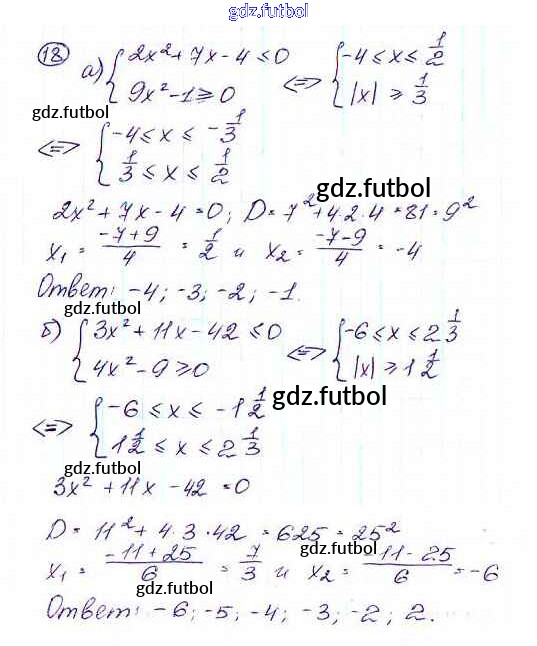 gdz.futbol
18 а) { 2x² + 7x - 4 ≤ 0 <=> { -4 ≤ x ≤ 1/2
9x² - 1 ≥ 0 |x| ≥ 1/3
gdz.futbol
<=> { -4 ≤ x ≤ -1/3
1/3 ≤ x ≤ 1/2
gdz.futbol
2x² + 7x - 4 = 0; D = 7² + 4·2·4 = 81 = 9²
gdz.futbol
x₁ = (-7+9)/4 = 1/2 и x₂ = (-7-9)/4 = -4
Ответ: -4; -3; -2; -1.
gdz.futbol
б) { 3x² + 11x - 42 ≤ 0 <=> { -6 ≤ x ≤ 2 1/3
4x² - 9 ≥ 0 |x| ≥ 1 1/2
gdz.futbol
<=> { -6 ≤ x ≤ -1 1/2
1 1/2 ≤ x ≤ 2 1/3
gdz.futbol
3x² + 11x - 42 = 0
D = 11² + 4·3·42 = 625 = 25²
gdz.futbol
x₁ = (-11+25)/6 = 7/3 и x₂ = (-11-25)/6 = -6
gdz.futbol
Ответ: -6; -5; -4; -3; -2; 2.
gdz.futbol